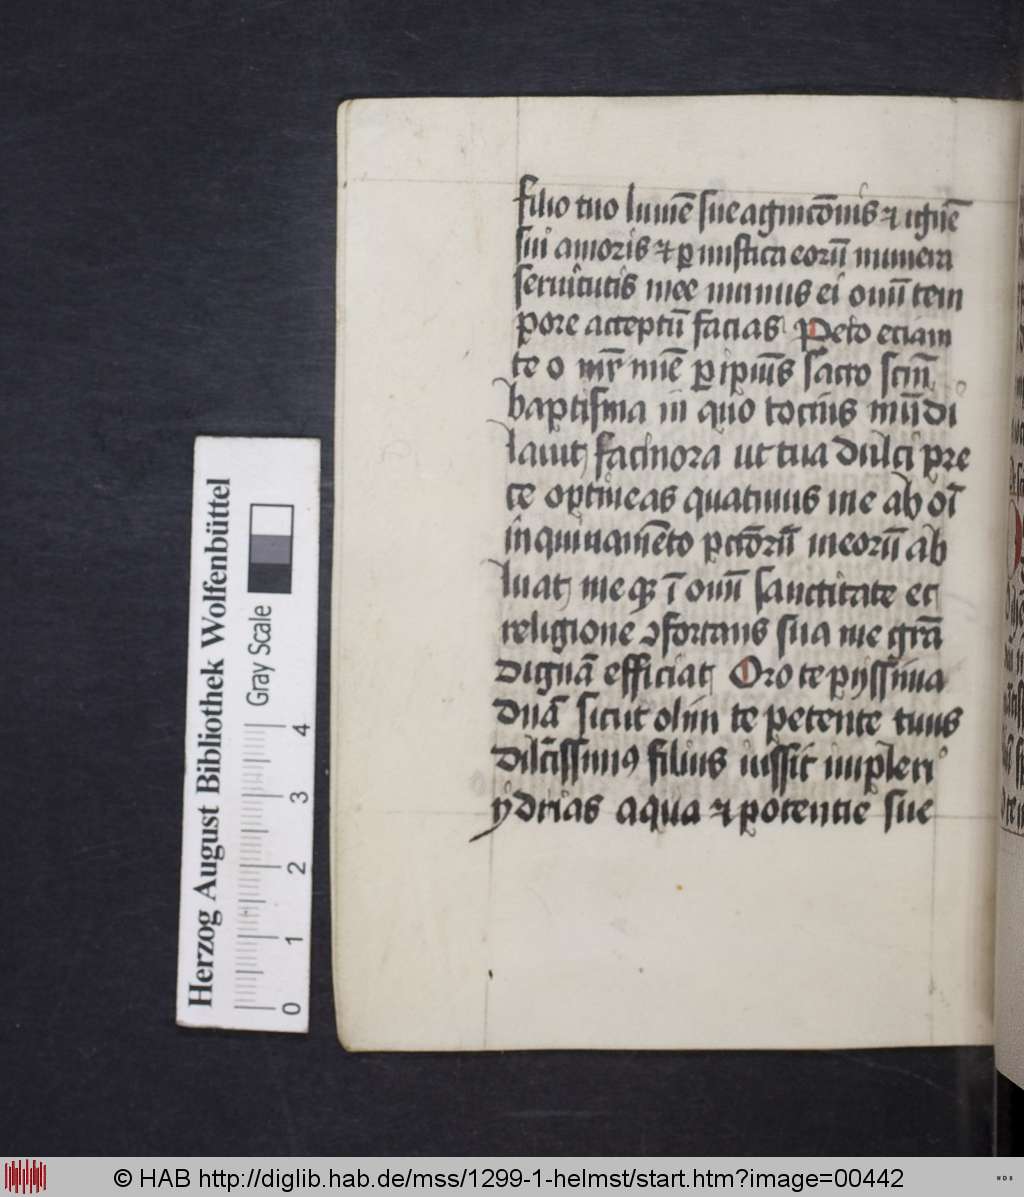 filio tuo lumē sue agnicōnis ⁊ ignē
sui amoris ⁊ ꝑ mistica eorū munera
seruitutis mee munus ei omī tem
pore acceptū facias Peto eciam
te o mr̄ mīe ꝑ ipīus sacro scm̄
baptisma in quo tocius mūdi
lauit facinora ut tua dulci pre
ce optineas quatinus me ab oī
inquinamēto pccōrū meorū ab
luat meqꝫ ī omī sanctitate et
religione ꝯfortans sua me grā
dignā efficiat Oro te pijssīma
dnā sicut olim te petente tuus
dilc̄issimꝰ filius iussit impleri
ydrias aqua ⁊ potentie sue
Herzog August Bibliothek Wolfenbüttel
Gray Scale
0 1 2 3 4
© HAB http://diglib.hab.de/mss/1299-1-helmst/start.htm?image=00442